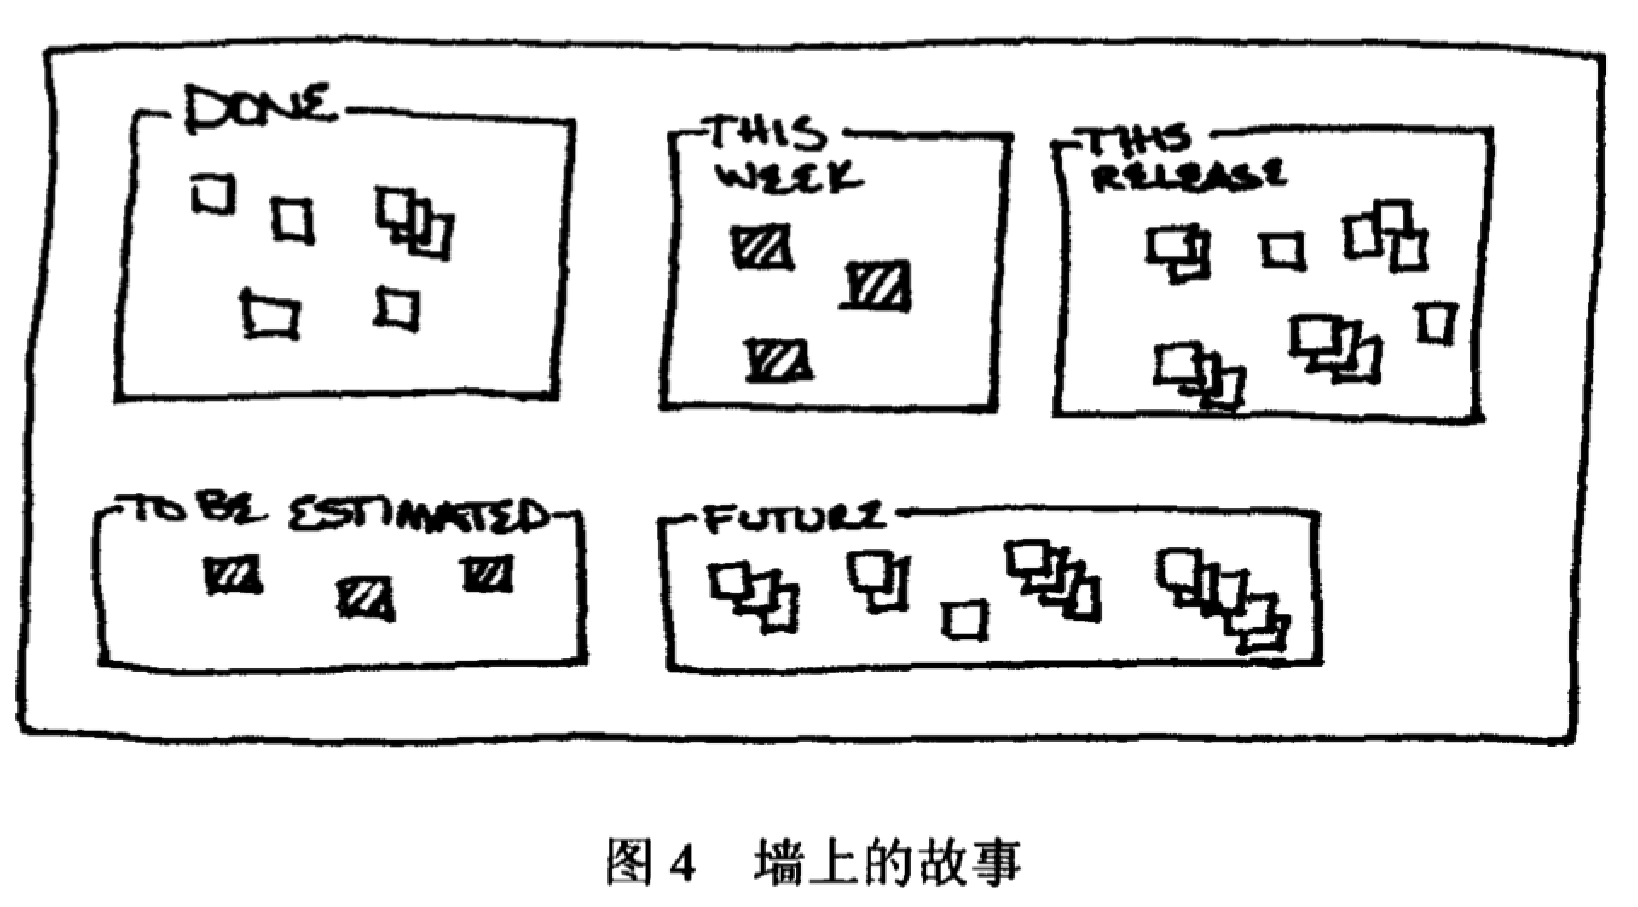 DONE
THIS
WEEK
THIS
RELEASE
TO BE ESTIMATED
FUTURE
图4 墙上的故事